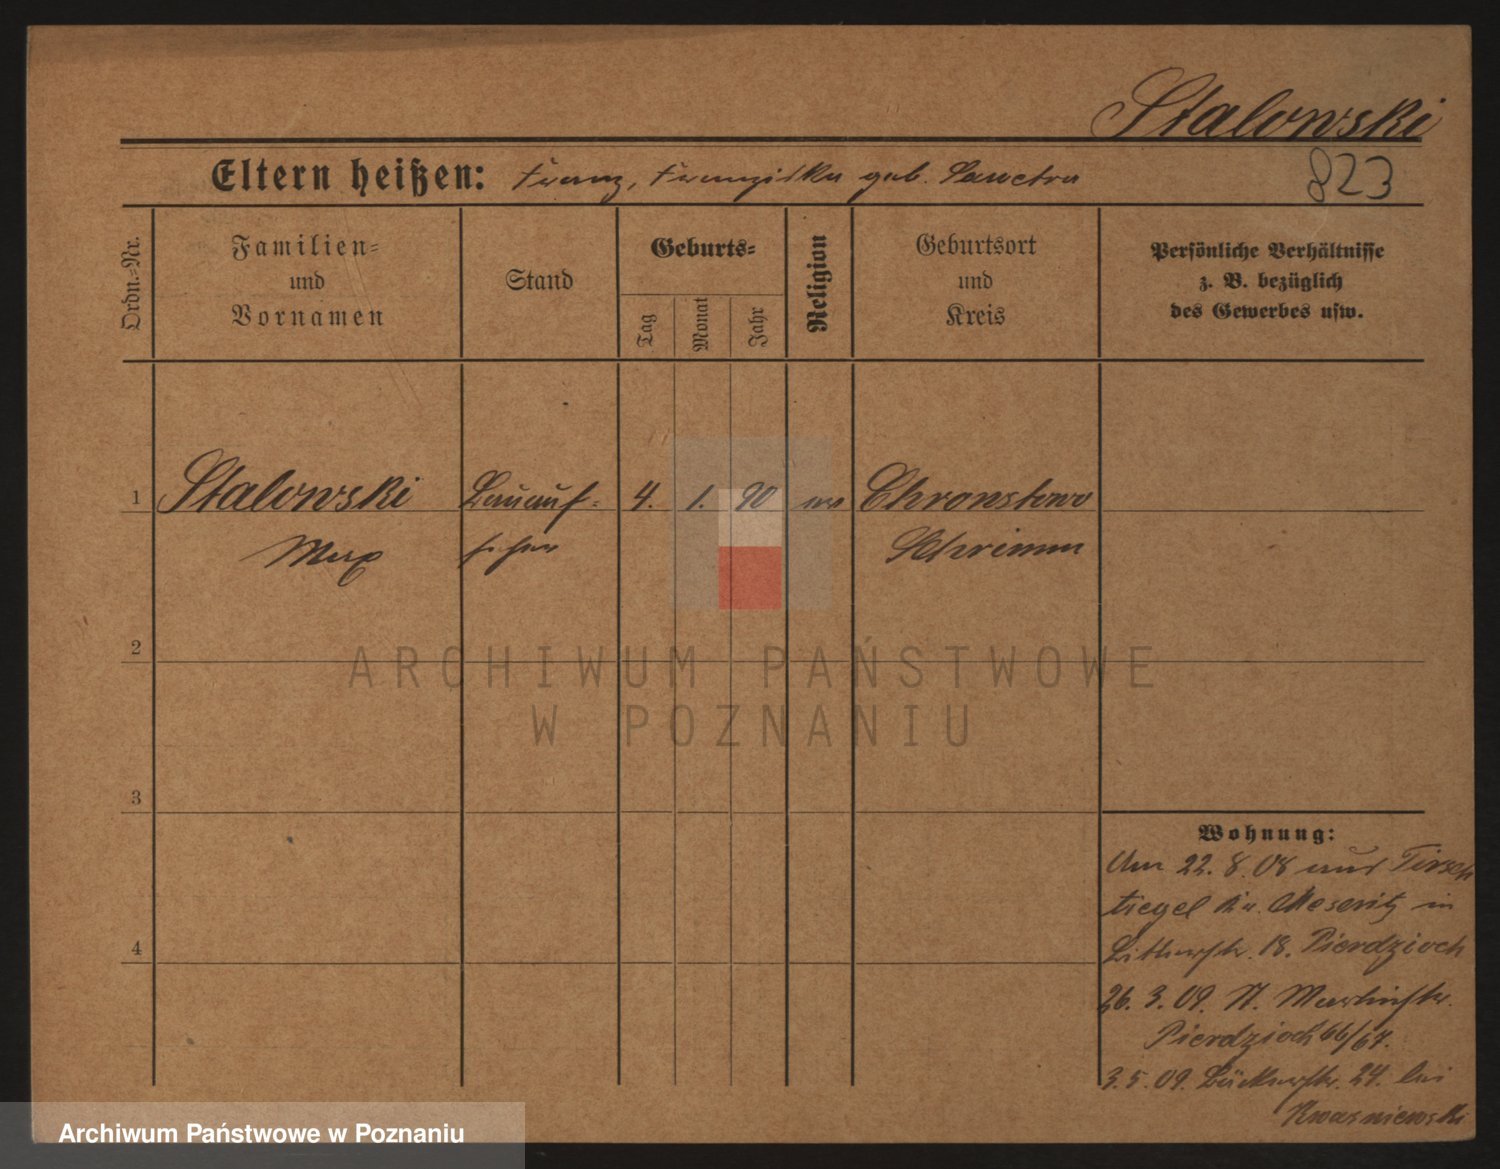 Stalowski
823
Eltern heißen: Franz, Franziska geb.
Ordn.=Nr.
Familien=
und
Vornamen
Stand
Geburts=
Tag
Monat
Jahr
Religion
Geburtsort
und
Kreis
Persönliche Verhältnisse
z. B. bezüglich
des Gewerbes usw.
1 Stalowski Bauauf= 4. 1. 90 Chronstowo
Max seher Schrimm
2
ARCHIWUM PAŃSTWOWE
W POZNANIU
3
Wohnung:
Am 22. 8. 08 aus Tirsch
tiegel Kr. Meseritz in
4
18. Pierdzioch
26. 3. 09. St. Martinstr.
Pierdzioch 66/67.
3. 5. 09. Bäckerstr. 24. bei
Kwasniewski
Archiwum Państwowe w Poznaniu